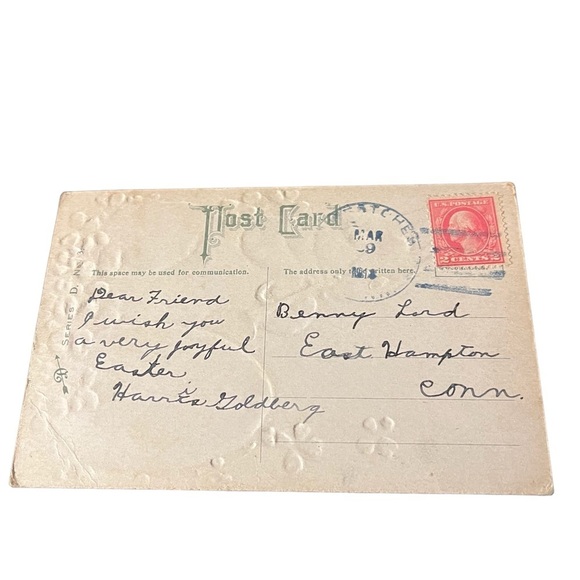 Post Card
MAR
U.S. POSTAGE
2 CENTS 2
This space may be used for communication.
The address only to be written here.
SERIES D, No. 3
Dear Friend
I wish you
a very joyful
Easter
Harris Goldberg
Benny Lord
East Hampton
Conn.